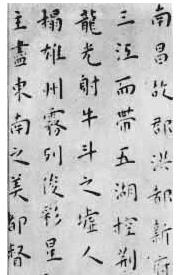 南昌故郡洪都新府
三江而帶五湖控荆
龍光射牛斗之墟人
榻雄州霧列俊彩星
主盡東南之美都督